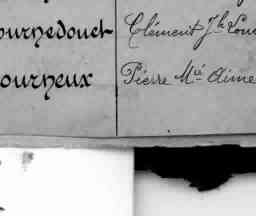 ournedouet Clément Jh Loui
ourneux Pierre Mié Aimé